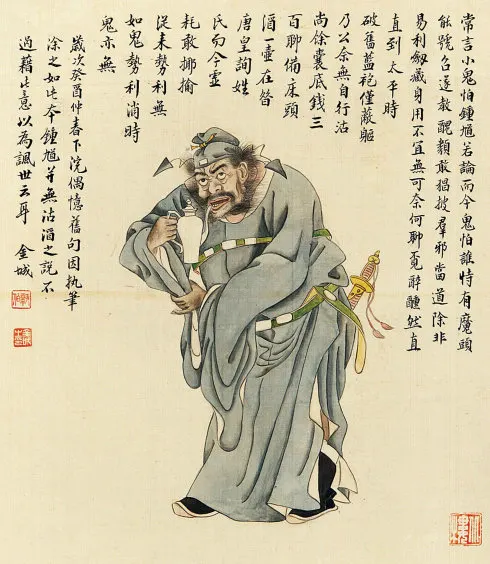 常言小鬼怕鍾馗若論而今鬼怕誰恃有魔頭
能號召遂教醜類敢猖披羣邪當道除非
易利劔藏身用不宜無可奈何聊覓醉醺然直
直到太平時
破舊藍袍僅蔽軀
乃公余無自行沽
尚餘囊底錢三
百聊備床頭
酒一壺在昝
唐皇詢姓
氏而今靈
耗敢揶揄
從來勢利無
如鬼勢利消時
鬼亦無
歲次癸酉仲春下浣偶憶舊句因執筆
涂之如此本鍾馗并無沽酒之說不
過藉此意以為諷世云耳 金城